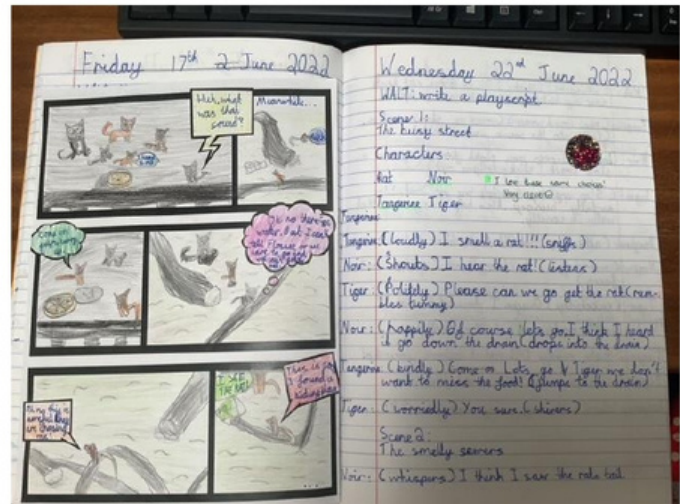 Friday 17th June 2022
Huh, what
was that
sound?
Meanwhile...
Oh no there's
water, but I can't
This is
I found a
hiding place
I SEE
THE RAT
Wednesday 22nd June 2022
WALT: write a playscript
Scene 1:
The busy street
Characters:
Rat Noir
I love these name choices!
Very clever
Tangerine Tiger
Tangerine
Tangerine: (loudly) I smell a rat!!! (sniffs)
Noir: (Shouts) I hear the rat! (listens)
Tiger: (Politely) Please can we go get the rat (rum-
bles tummy)
Noir: (happily) Of course let's go. I think I heard
it go down the drain (drops into the drain)
Tangerine: (kindly) Come on Lets go Tiger we don't
want to miss the food! (jumps to the drain)
Tiger: (worriedly) You sure. (shivers)
Scene 2:
The smelly sewers
Noir: (whispers) I think I saw the rats tail